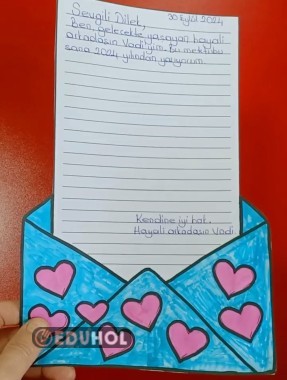 Sevgili Dilek, 30 Eylül 2024
Ben, gelecekte yaşayan hayali
arkadaşın Vadi'yim. Bu mektubu
sana 2024 yılından yazıyorum.
Kendine iyi bak.
Hayali arkadaşın Vadi
EDUHOL